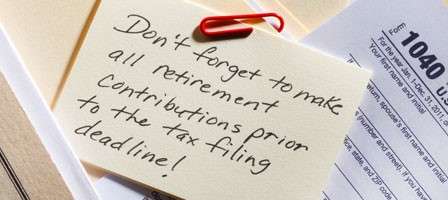 Don't forget to make
all retirement
contributions prior
to the tax filing
deadline!
Form 1040 U
For the year Jan. 1-Dec. 31, 2011, o
Your first name and initial
return, spouse's first name and initial
(number and street). If you have
state, and ZIP code